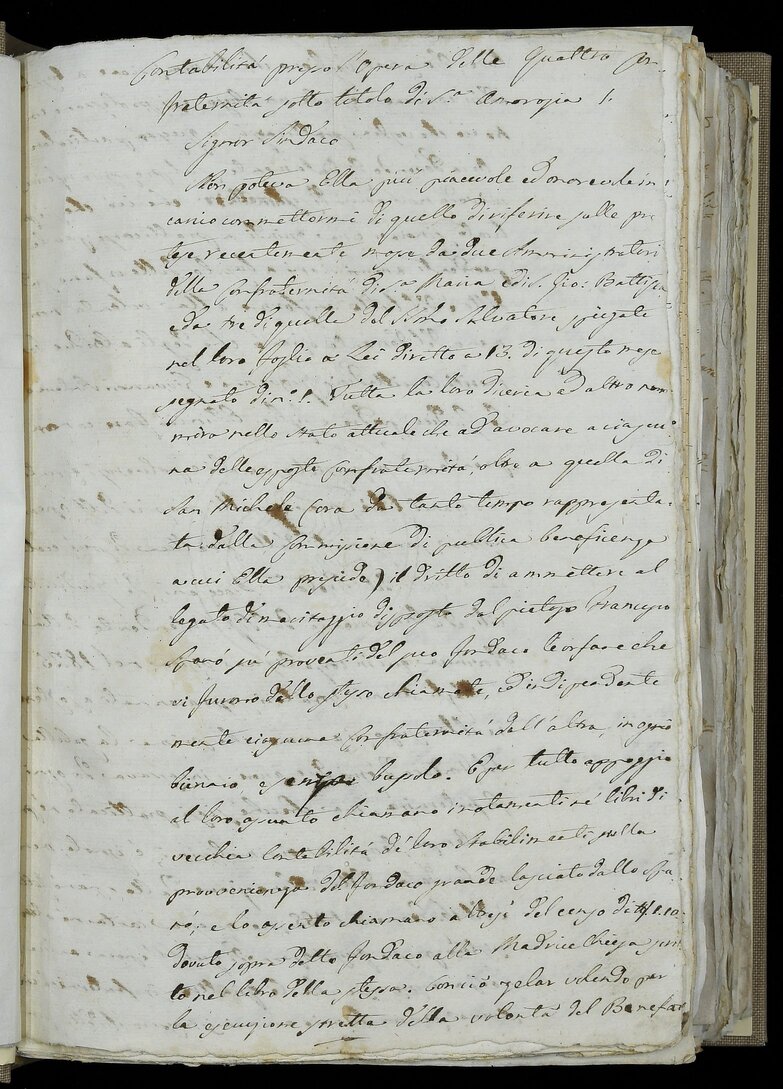 Contabilità presso l'opera delle quattro con-
fraternita sotto titolo di S.ª
Signor Sindaco
Non poteva Ella più piacevole ed onorevole in
carico commettermi di quello di riferire sulle pre
tese recentemente mosse da due Amministratori
della Confraternità di S.ª Maria e di S. Gio: Battista
e da tre di quella del SS.mo Salvatore spiegate
nel loro foglio a Lei diretto a 13. di questo mese
segnato di n.º 1. Tutta la loro diceria ad altro non
mira nello stato attuale che ad avocare a ciascu
na delle esposte Confraternità, oltre a quella di
San Michele (ora da tanto tempo rappresenta
ta dalla Commissione di publica beneficenza
a cui Ella presiede) il dritto di ammettere al
legato di maritaggio disposto dal pietoso Francesco
Sparò su' proventi del suo fondaco le orfane che
vi furono dallo stesso chiamate, ed indipendente
mente ciascuna Confraternità dall'altra, in ogni
biennio, e senza bussolo. E per tutto appoggio
al loro assunto chiamano i notamenti ne' libri di
vecchia Contabilità de' loro stabilimenti sulla
provenienza del fondaco grande lasciato dallo Spa
rò; e lo assento chiamano altresì del censo di 1.10
dovuto sopra detto fondaco alla Madrice Chiesa
to nel libro della stessa. Con ciò zelar volendo per
la esecuzione stretta della volontà del Benefat